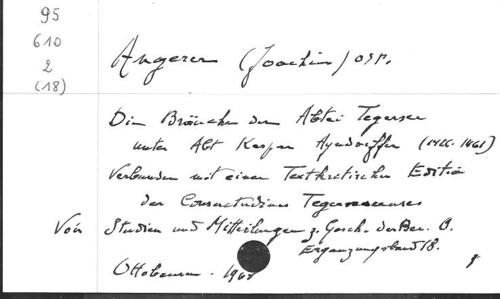 95
610
2
(18)
Angerer (Joachim) OSB.
Die Bräuche der Abtei Tegernsee
unter Abt Kaspar Ayndorffer (1426-1461)
verbunden mit einer Textkritischen Edition
der Consuetudines Tegernseenses
Voir Studien und Mitteilungen z. Gesch. des Ben. O.
Ergänzungsband 18.
Ottobeuren. 1968